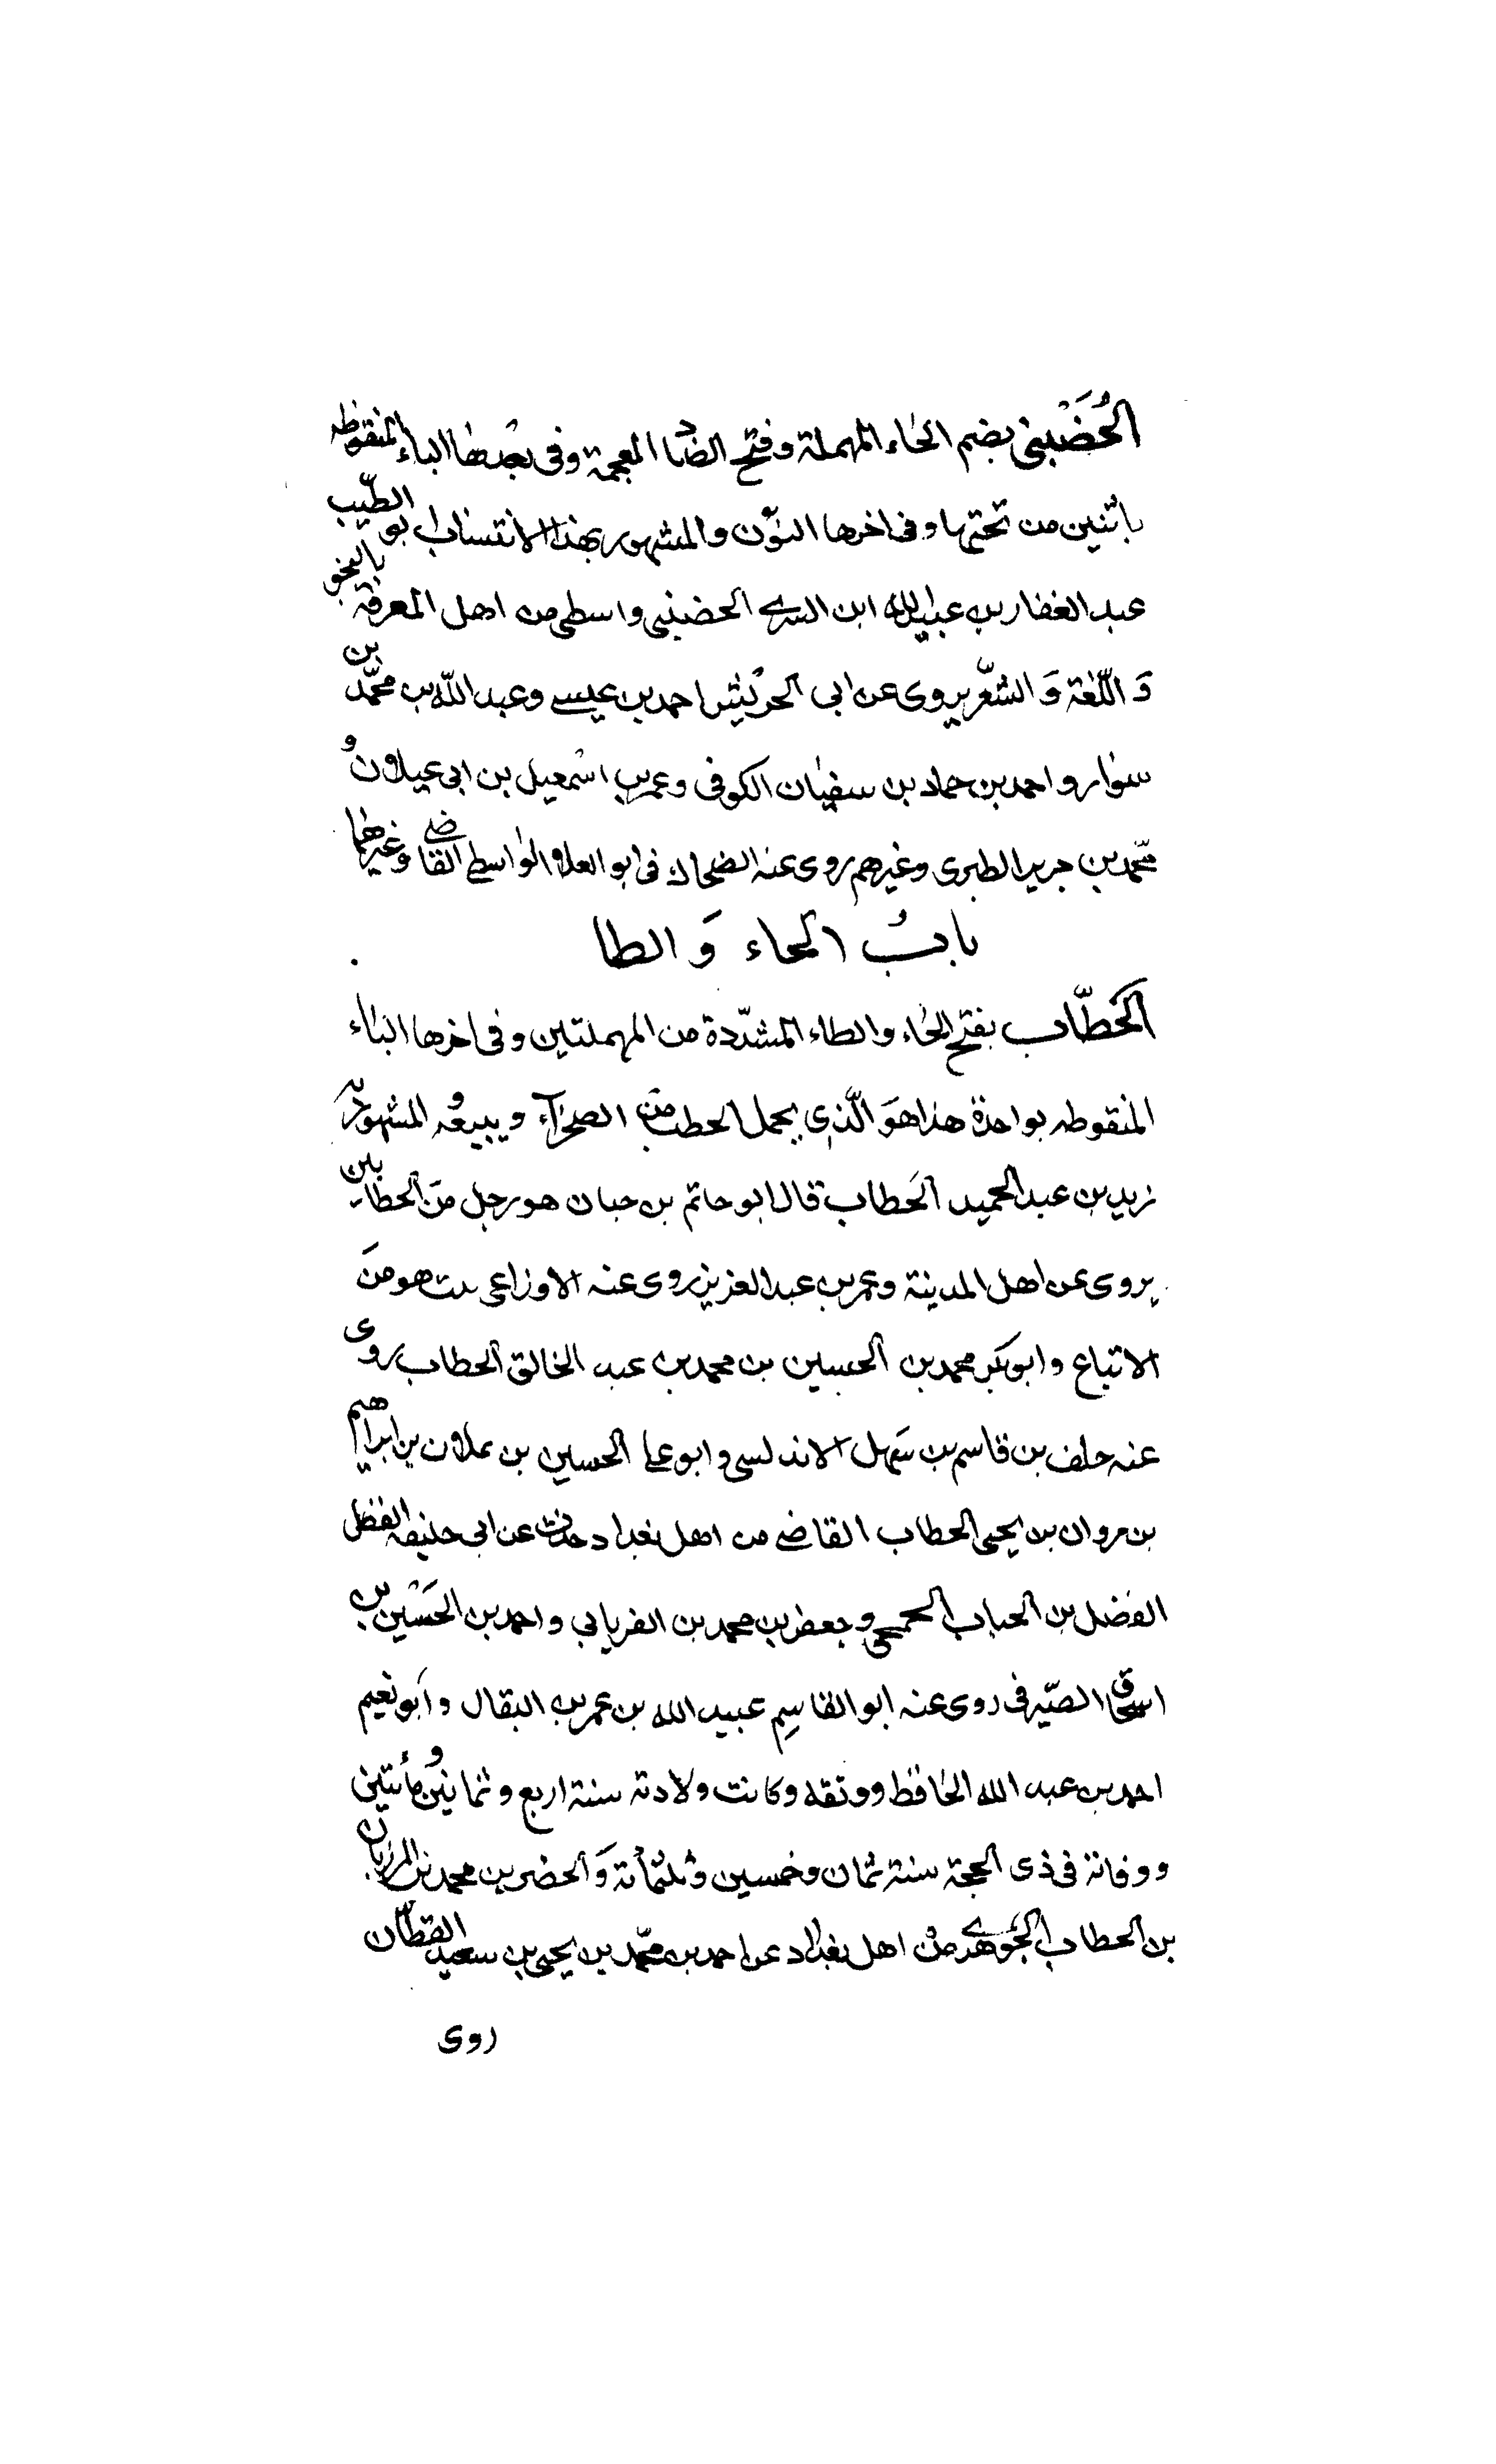 الحُضَيْني بضم الحاء المهملة وفتح الضاد المعجمة وفى بعدها الياء المنقوطه
باثنين من تحتها وفى اخرها النون والمشهور بهذا الانتساب ابو الطيب
عبد الغفار بن عبيد الله ابن السرى الحضينى واسطى من اهل المعرفة بالنحو
وَ اللّغة وَ الشعر يروى عن ابى الحريش احمد بن عيسى وعبد الله بن محمّد بن
سوار و احمد بن حماد بن سفيان الكوفى وعمر بن اسمعيل بن ابى عيلان وُ
محمّد بن جرير الطبرى وغيرهم روى عنه الصحاك فى ابو العلا الواسطى القاضى وغيرهما
بابُ الحاء وَ الطا
الَحطّاب بفتح الحاء والطاء المشدّدة من المهملتين وفى اخرها الباء
المنقوطه بواحدة هذا هوَ الّذي يحمل الحطب من الصحرآء ويبيعُه المشهور به
زيد بن عبد الحميد الَحطاب قال ابو حاتم بن حبان هو رجل منَ الحطابين
يروى عن اهل المدينة وعمر بن عبد العزيز روى عنه الاوزاعى هو منَ
الاتباع وابو بَكر محمد بن الحسين بن محمد بن عبد الخالق الحطاب روى
عنه حلف بن قاسم بن سَهل الاندلسى وابو على الحسين بن علان بن ابراهيم
بن مروان بن يحيى الحطاب القاضى من اهل بغداد حدث عن ابى حنيفه الفضل
الفضل بن الحباب الجمحى وجعفر بن محمد بن الفريابي واحمد بن الحَسْين بن
اسحاق الصيرفى روى عنه ابو القاسِم عبيد الله بن عمر بن البقال وابو نعيم
احمد بن عبد الله الحافظ ووثقه وكانت ولادته سنة اربع وثمانين وُمأتين
ووفاته فى ذى الحجة سنة ثمان وخمسين وثلثمأئة وَالحضر بن محمد بن المرزبان
بن الحطاب الجَوهرى منْ اهل بغداد عن احمد بن محمّد بن يحيى بن سعيد القطّان
روى